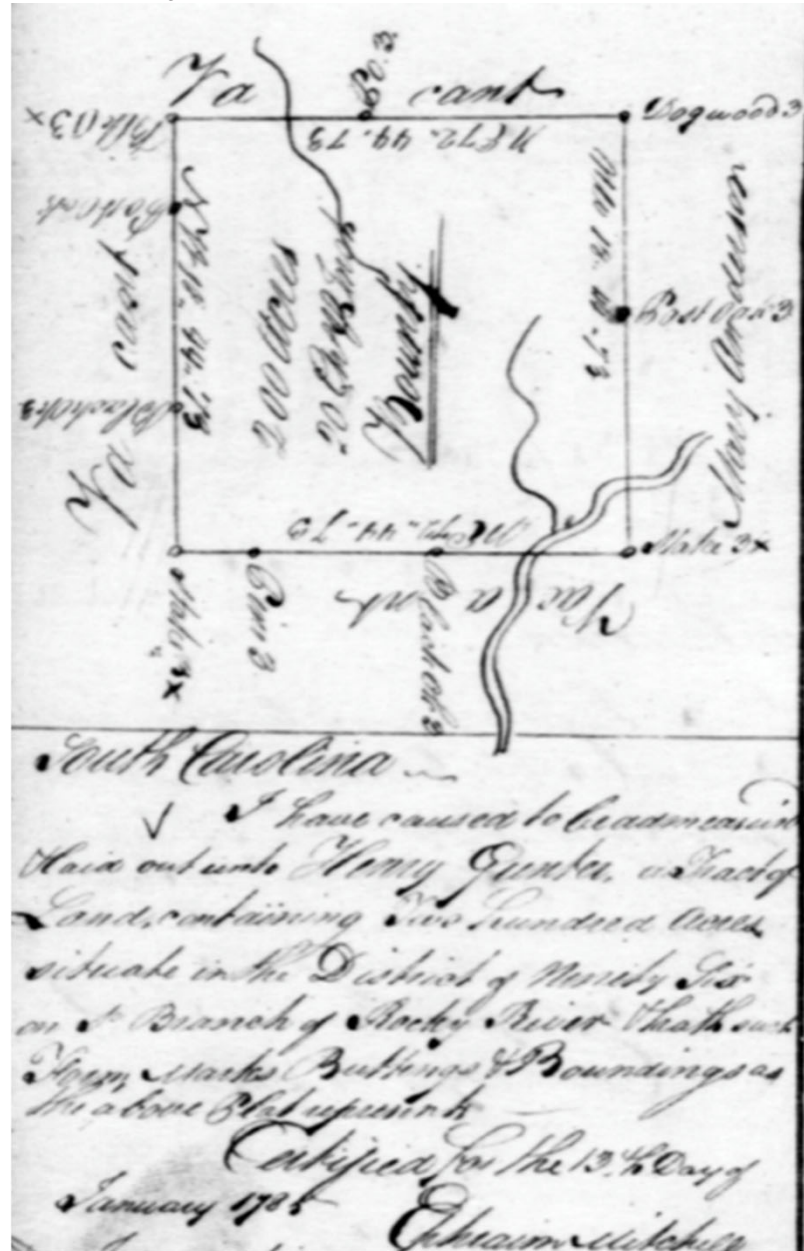 Va cant
P.O. 3
Dogwood 3
Blk O 3x
NE 72. 44.73
Post oak
200 Acres
Bounty
Post Oak 3
Mary Anderson
Va cant
44.73
Black Ok 3
44.73
Stake 3x
Vac a nt
Pine 3
Black Ok 3
Stake 3x
South Carolina
I have caused to be admeasured
& laid out unto Henry Gunter, a Tract of
Land, containing Two hundred Acres
situate in the District of Ninety Six
on a Branch of Rocky River & hath such
Form, Marks Buttings & Boundings as
the above Plat represents
Certified for the 13th Day of
January 1785
Ephraim Mitchell